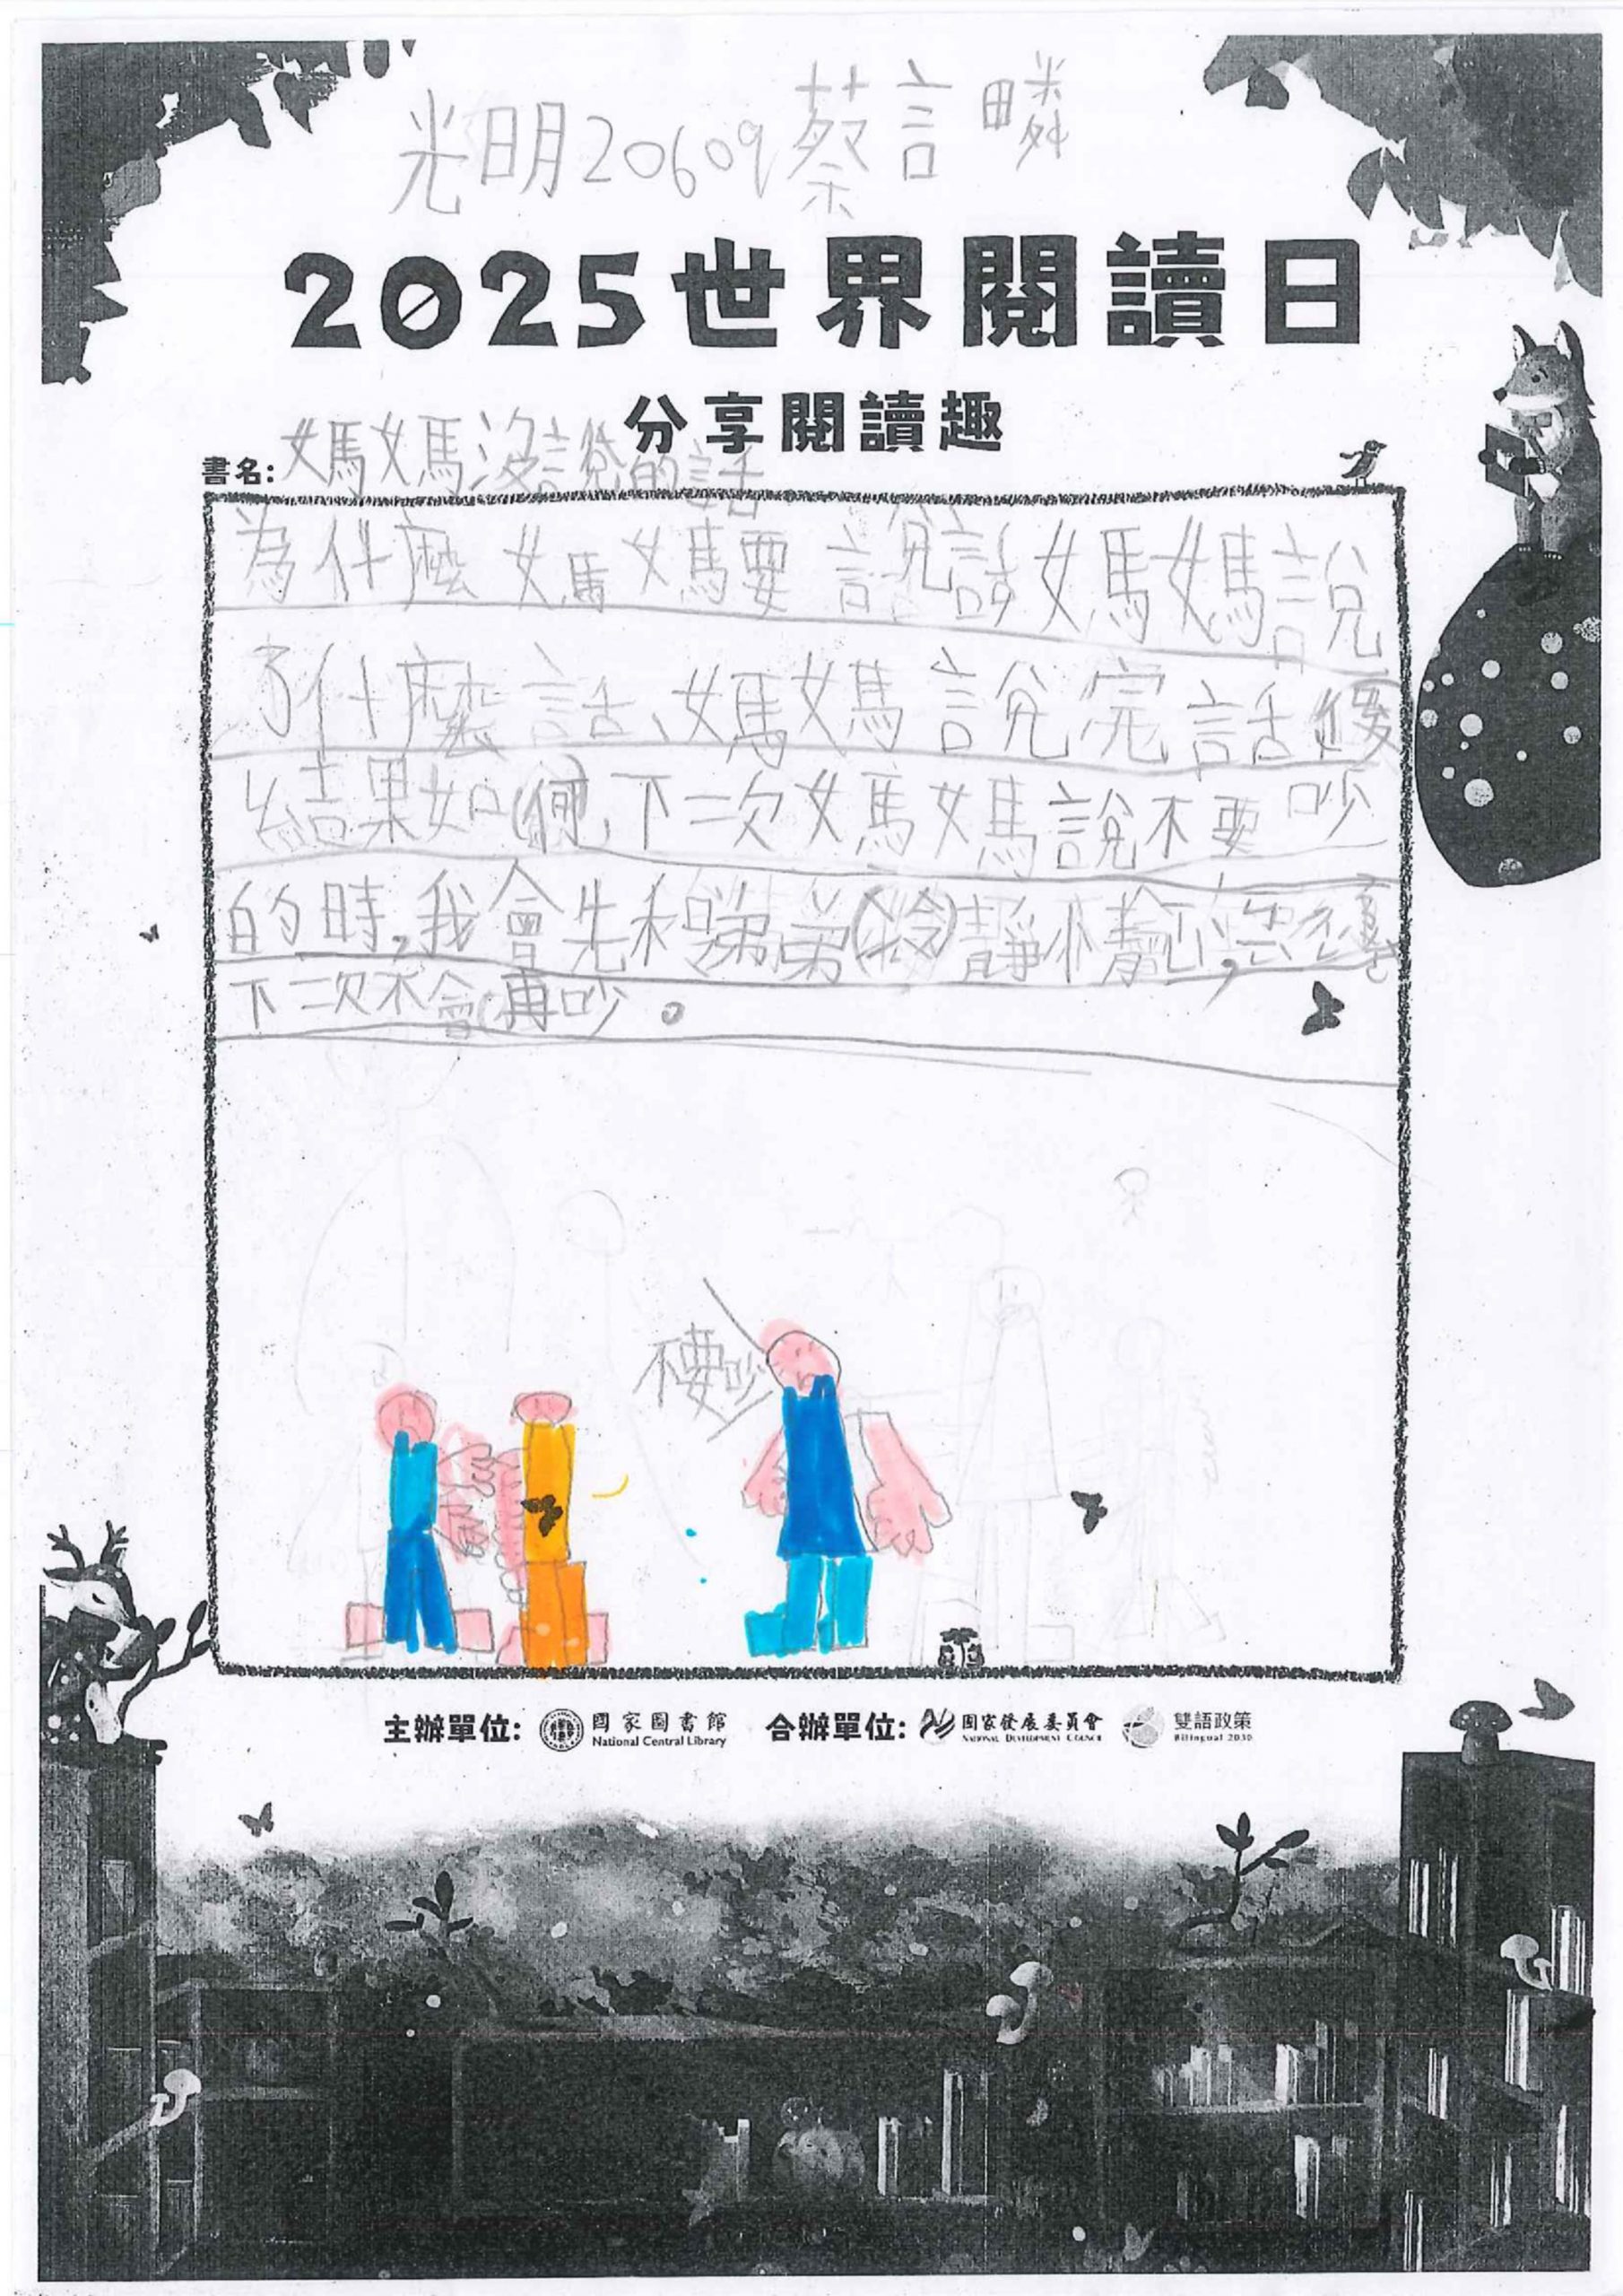 光明20609蔡言疄
2025世界閱讀日
分享閱讀趣
書名:媽媽沒說的話
為什麼媽媽要說話媽媽說
了什麼話、媽媽說完話後
結果如何,下二次媽媽說不要吵
的時,我會先和弟弟冷靜情
下二次不會再吵。
不要吵
主辦單位: 國家圖書館 National Central Library 合辦單位: 國家發展委員會 NATIONAL DEVELOPMENT COUNCIL 雙語政策 Bilingual 2030